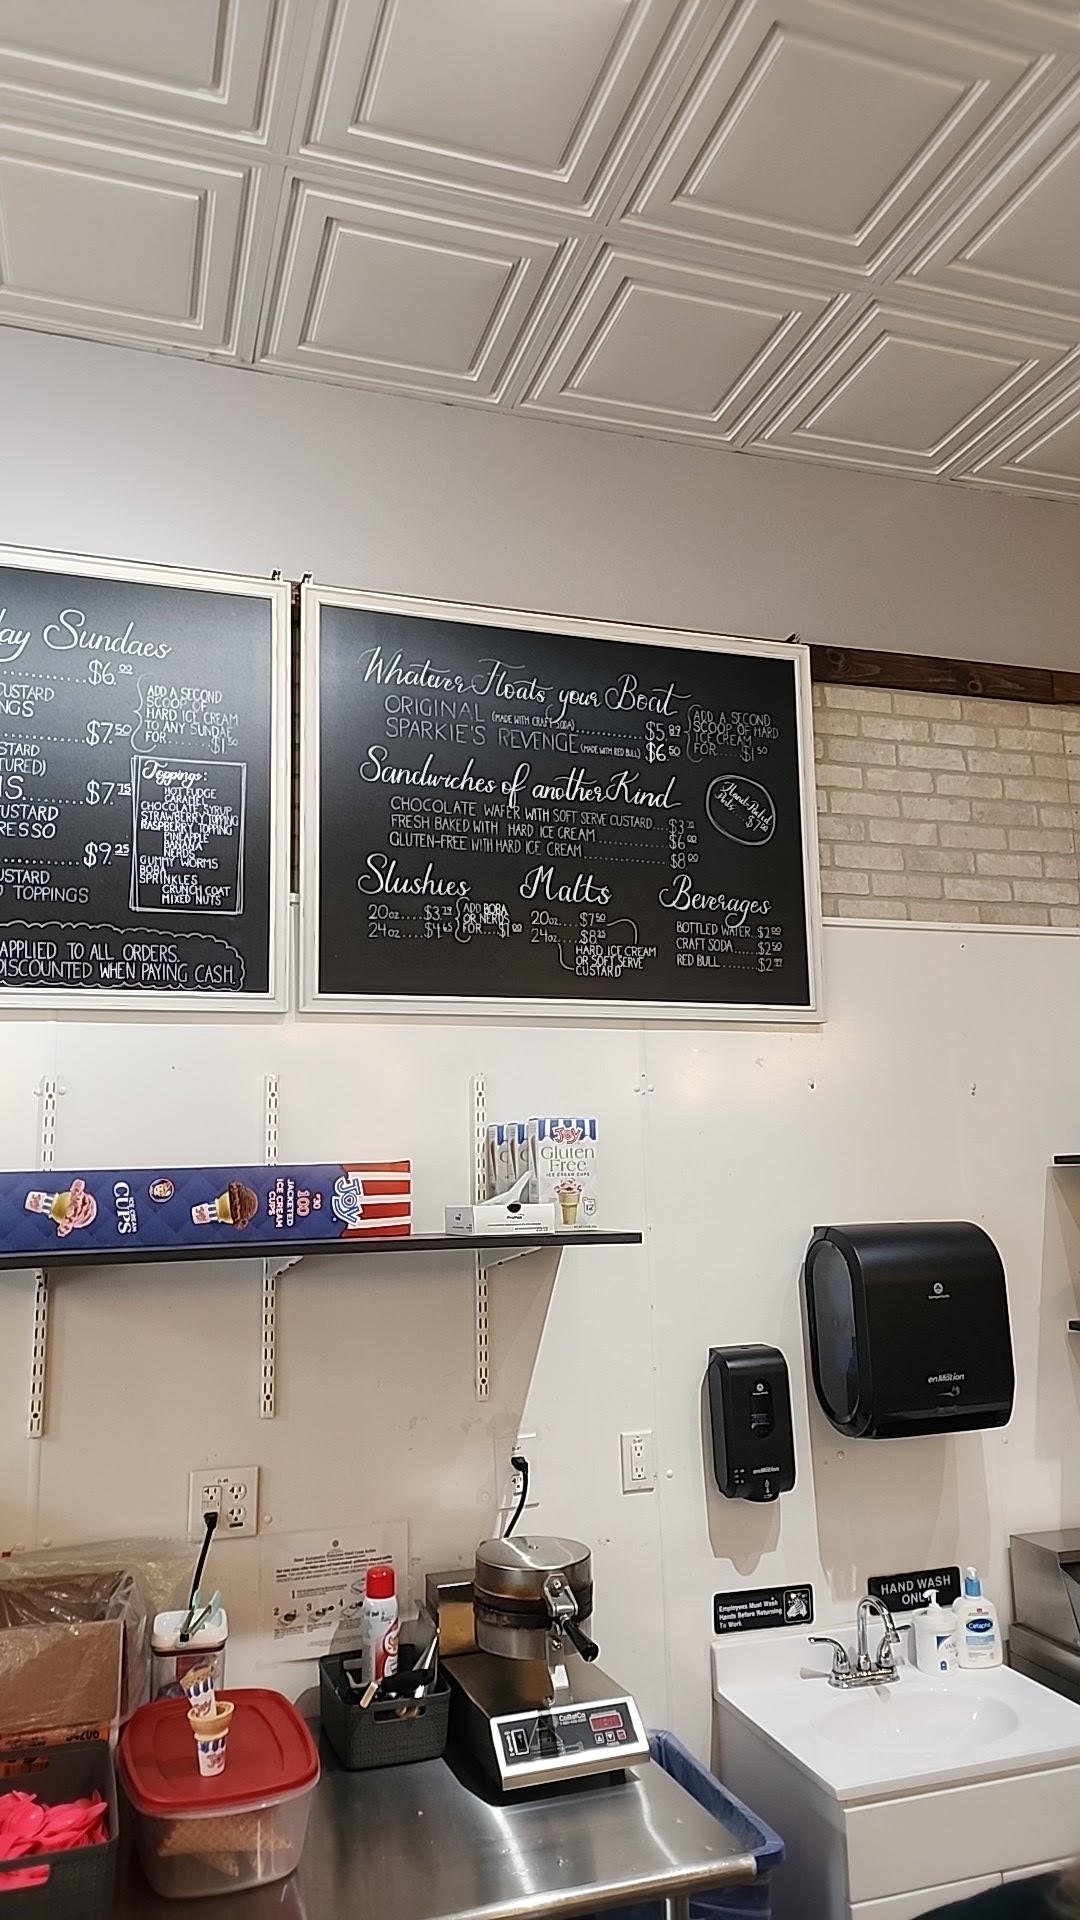 Sundaes
$6.00
CUSTARD
$7.50
CUSTARD
$7.75
CUSTARD
$9.25
CUSTARD
TOPPINGS
ADD A SECOND
SCOOP OF
HARD ICE CREAM
TO ANY SUNDAE
FOR........$1.50
Toppings:
HOT FUDGE
CARAMEL
CHOCOLATE SYRUP
STRAWBERRY TOPPING
RASPBERRY TOPPING
PINEAPPLE
BANANA
NERDS
GUMMY WORMS
BOBA
SPRINKLES
CRUNCH COAT
MIXED NUTS
APPLIED TO ALL ORDERS.
DISCOUNTED WHEN PAYING CASH.
Whatever Floats your Boat
ORIGINAL (MADE WITH CRAFT SODA)
SPARKIE'S REVENGE (MADE WITH RED BULL) $6.50
ADD A SECOND
SCOOP OF HARD
ICE CREAM
FOR.......$1.50
Sandwiches of another Kind
CHOCOLATE WAFER WITH SOFT SERVE CUSTARD...
FRESH BAKED WITH HARD ICE CREAM............$6.00
GLUTEN-FREE WITH HARD ICE CREAM............$8.00
Hand-Packed
Pints
Slushies
20oz....
24oz....
ADD BOBA
OR NERDS
FOR...$1.00
Malts
20oz....$7.50
24oz....
HARD ICE CREAM
OR SOFT SERVE
CUSTARD
Beverages
BOTTLED WATER.
CRAFT SODA......$2.50
RED BULL........
ICE CREAM
CUPS
#30
100
JACKETED
ICE CREAM
CUPS
JOY
JOY
Gluten
Free
ICE CREAM CUPS
12
enMotion
enMotion
Employees Must Wash
Hands Before Returning
To Work
HAND WASH
ONLY
Cetaphil
CoBatCo